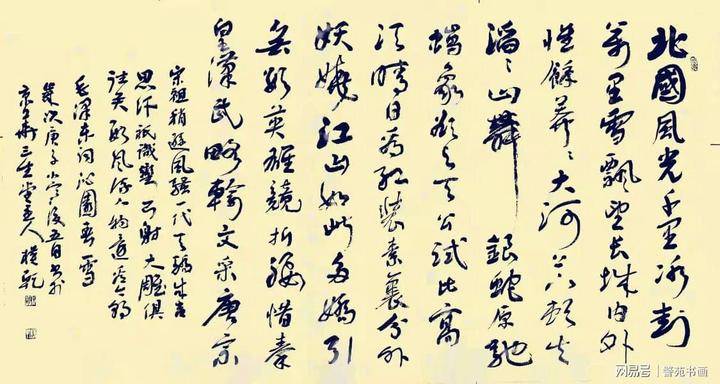 北國風光千里冰封
萬里雪飄望長城内外
惟餘莽〻大河上下頓失
滔〻山舞銀蛇原馳
蠟象欲與天公試比高
須晴日看紅裝素裹分外
妖嬈江山如此多嬌引
無數英雄競折腰惜秦
皇漢武略輸文采唐宗
宋祖稍遜風騷一代天驕成吉
思汗祇識彎弓射大雕俱
往矣數風流人物還看今朝
毛澤東詞沁園春雪
歲次庚子小後五日書於
京華三生堂主人樸乾
网易号 | 警苑书画